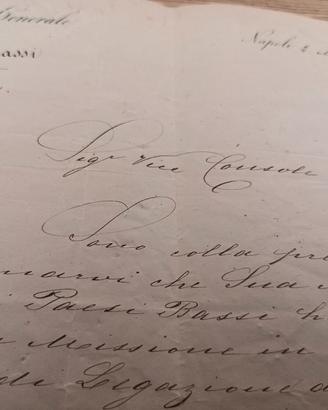 Generale
Napoli 2
assi
Sigr Vice Console
Sono colla pre
marvi che Sua
i Paesi Bassi h
Missione in
di Legazione a